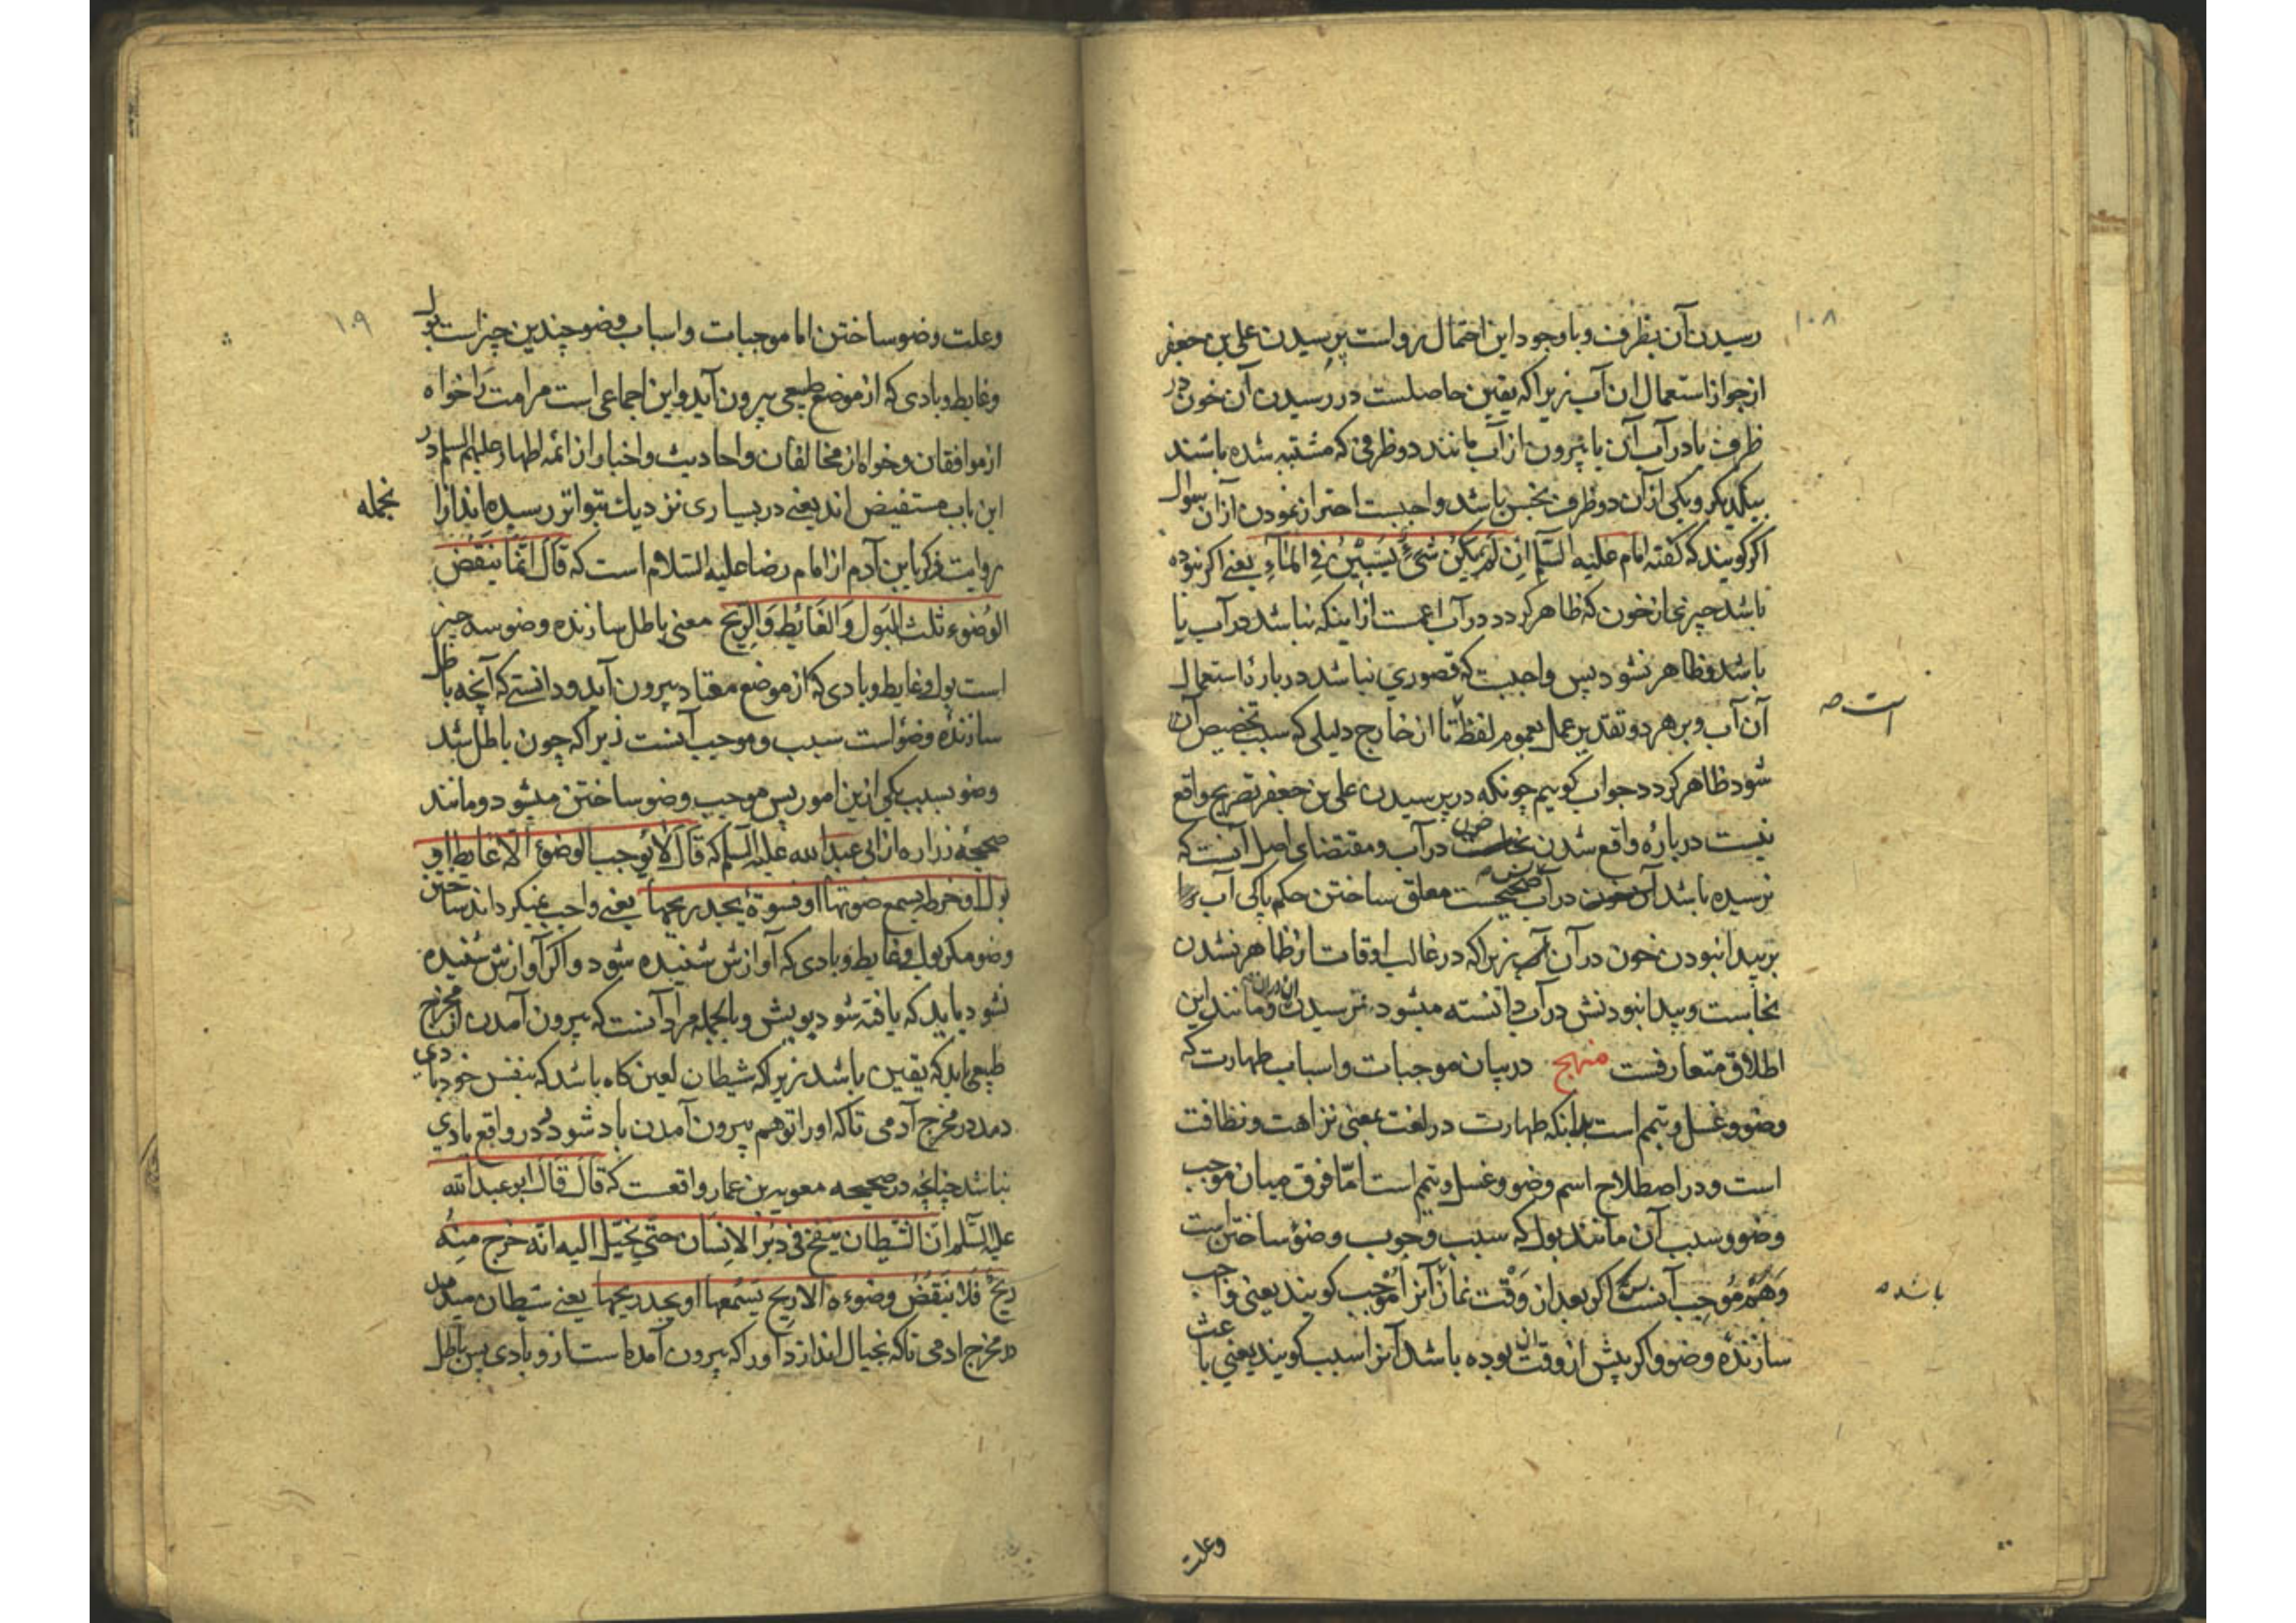 ۱۰۸
رسیدن آن بظرف و با وجود این احتمال رواست پرسیدن علی بن جعفر
از جواز استعمال ان آب زیرا که یقین حاصلست در رسیدن آن خون در
ظرف یا در آب آن یا بیرون از آب مانند دو ظرفی که مشتبه شده باشند
بیکدیکر و یکی از آن دو ظرف نجس باشد واجبست احتراز نمودن از آن سوال
اکر کویند که کفته امام علیه السلم ان لم یکن شیء یستبین فی الماء یعنی اکر نبوده
باشد چیزی از خون که ظاهر کردد در آب اعمست از اینکه نباشد در آب یا
باشد و ظاهر نشود پس واجبست که قصوری نباشد در بارهٔ استعمال
آن آب و بر هر دو تقدیر عمل بعموم لفظ تا از خارج دلیلی که سبب تخصیص آن
است صه
شود ظاهر کردد جواب کوییم چونکه در پرسیدن علی بن جعفر تصریح واقع
نیست در بارهٔ واقع شدن خون در آب و مقتضای اصل آنست که
نرسیده باشد آن خون در آب صحیحست معلق ساختن حکم پاکی آب را
بر پیدا نبودن خون در آن آب زیرا که در غالب اوقات از ظاهر نشدن
نجاست و پیدا نبودنش در آب دانسته میشود نرسیدن ان در ان و مانند این
اطلاق متعارفست منهج در بیان موجبات و اسباب طهارت که
وضو و غسل و تیمم است بدانکه طهارت در لغت بمعنی نزاهت و نظافت
است و در اصطلاح اسم وضو و غسل و تیمم است امّا فرق میان موجب
وضو و سبب آن مانند بول که سبب وجوب وضو ساختن است
وهم موجب آنست که اکر بعد از وقت نماز آنرا موجب کویند یعنی واجب
باشد صه
سازندهٔ وضو و اکر پیش از وقت ان بوده باشد آنرا سبب کویند یعنی باعث
وعلت
۱۰۹
وعلت وضو ساختن اما موجبات و اسباب وضو چندین چیز است بول
و غایط و بادی که از موضع طبیعی بیرون آید و این اجماعی است مر امت را خواه
از موافقان و خواه از مخالفان و احادیث و اخبار از ائمه اطهار علیهم السلم در
این باب مستفیض اند یعنی در بسیاری نزدیك بتواتر رسیده اند از ا
نجمله
روایت زکریا بن آدم از امام رضا علیه السلام است که قال انّما ینقض
الوضوء ثلث البول والغایط والریح معنی باطل سازنده وضو سه چیز
است بول و غایط و بادی که از موضع معتاد بیرون آید و دانستی که آنچه باطل
سازندهٔ وضو است سبب و موجب آنست زیرا که چون باطل شد
وضو بسبب یکی ازین امور پس موجب وضو ساختن میشود و مانند
صحیحهٔ زراره از ابی عبدالله علیه السلم که قال لا یوجب الوضوء الا غایط او
بول او ضرطه یسمع صوتها او فسوة یجد ریحها یعنی واجب نمیکرداند ساختن
وضو مکر بول و غایط و بادی که آوازش شنیده شود و اکر آوازش شنیده
نشود باید که یافته شود بویش و بالجمله مراد آنست که بیرون آمدن از مخرج
طبیعی باید که یقین باشد زیرا که شیطان لعین کاه باشد که بنفس خود بادی
دمد در مخرج آدمی تا که او را توهم بیرون آمدن باد شود و در واقع بادی
نباشد چنانچه در صحیحه معویه بن عمار واقعست که قال قال ابو عبد الله
علیه السلم ان الشیطان ینفخ فی دبر الانسان حتّی یخیّل الیه انّه خرج منه
ریح فلا ینقض وضوءه الا ریح یسمعها او یجد ریحها یعنی شیطان میدمد
در مخرج ادمی تا که بخیال اندازد او را که بیرون آمده است از و بادی پس باطل